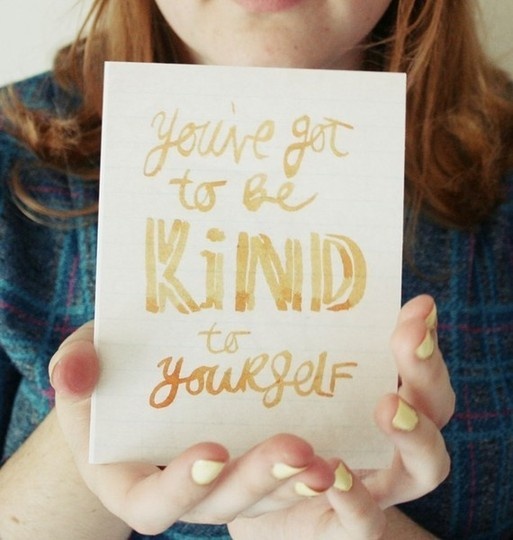 You've got
to be
KiND
to
yourself